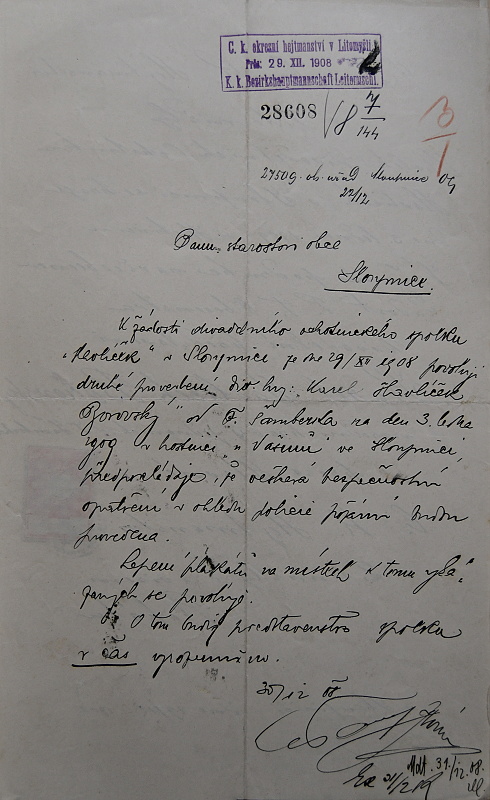 C. k. okresní hejtmanství v Litomyšli
Prés: 29. XII. 1908
K. k. Bezirkshauptmannschaft Leitomischl.
28608 /8 7/144
3/1
27509. ob. úřad Sloupnice
22/12
Panu starostovi obce
Sloupnice.
K žádosti divadelního ochotnického spolku
„Havlíček" v Sloupnici ze dne 29/XII 1908 povoluji
druhé provedení div. hry: „Karel Havlíček
Borovský" od F. Šamberka na den 3. ledna
1909 v hostinci u Vašinů ve Sloupnici,
předpokládaje, že veškerá bezpečnostní
opatření v ohledu policie požární budou
provedena.
Lepení plakátů na místech k tomu vyká-
zaných se povoluje.
O tom budiž představenstvo spolku
v čas vyrozuměno.
30/12 08
31./12. 08.